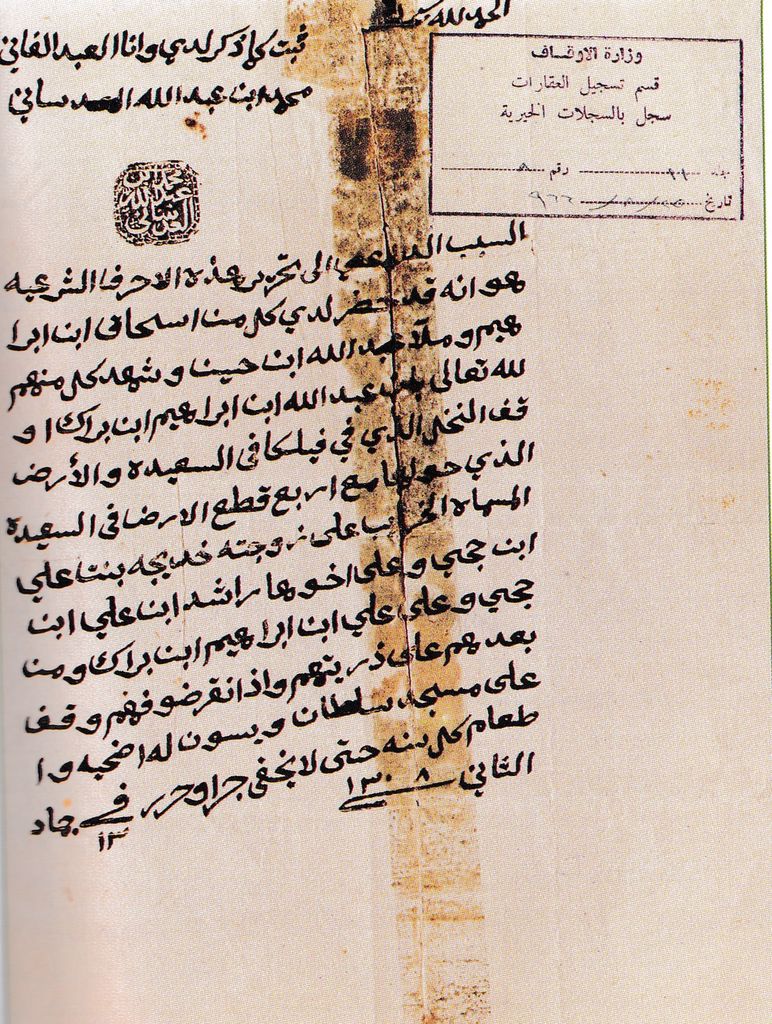 الحمد لله
ثبت كلما ذكر لدي وانا العبد الفاني
محمد ابن عبد الله العدساني
وزارة الاوقاف
قسم تسجيل العقارات
سجل بالسجلات الخيرية
رقم
تاريخ
محمد بن عبد الله العدساني
السبب الداعي الى تحرير هذه الاحرفا الشرعيه
هو انه قد حضر لدي كل منا اسحاق ابنا ابرا
هيم وملا عبد الله ابنا حينا وشهد كل منهم
لله تعالى بان عبد الله ابنا ابراهيم ابنا براك او
قف النخل الذي في فيلكا في السعيده والأرض
الذي حولها مع اربع قطع الارضا في السعيدة
المسماة الخرايب على زوجته خديجه بنتا علي
ابن جحي وعلى اخوها راشد ابنا علي ابن
جحي وعلى علي ابنا ابراهيم ابنا براك ومنا
بعدهم على ذريتهم واذا نقرضو فهم وقف
على مسجد سلطان ويسون له اضحيه وا
طعام كل سنه حتى لا يخفى جرا وحرر في ١٣ جماد
الثاني ١٣٠٨